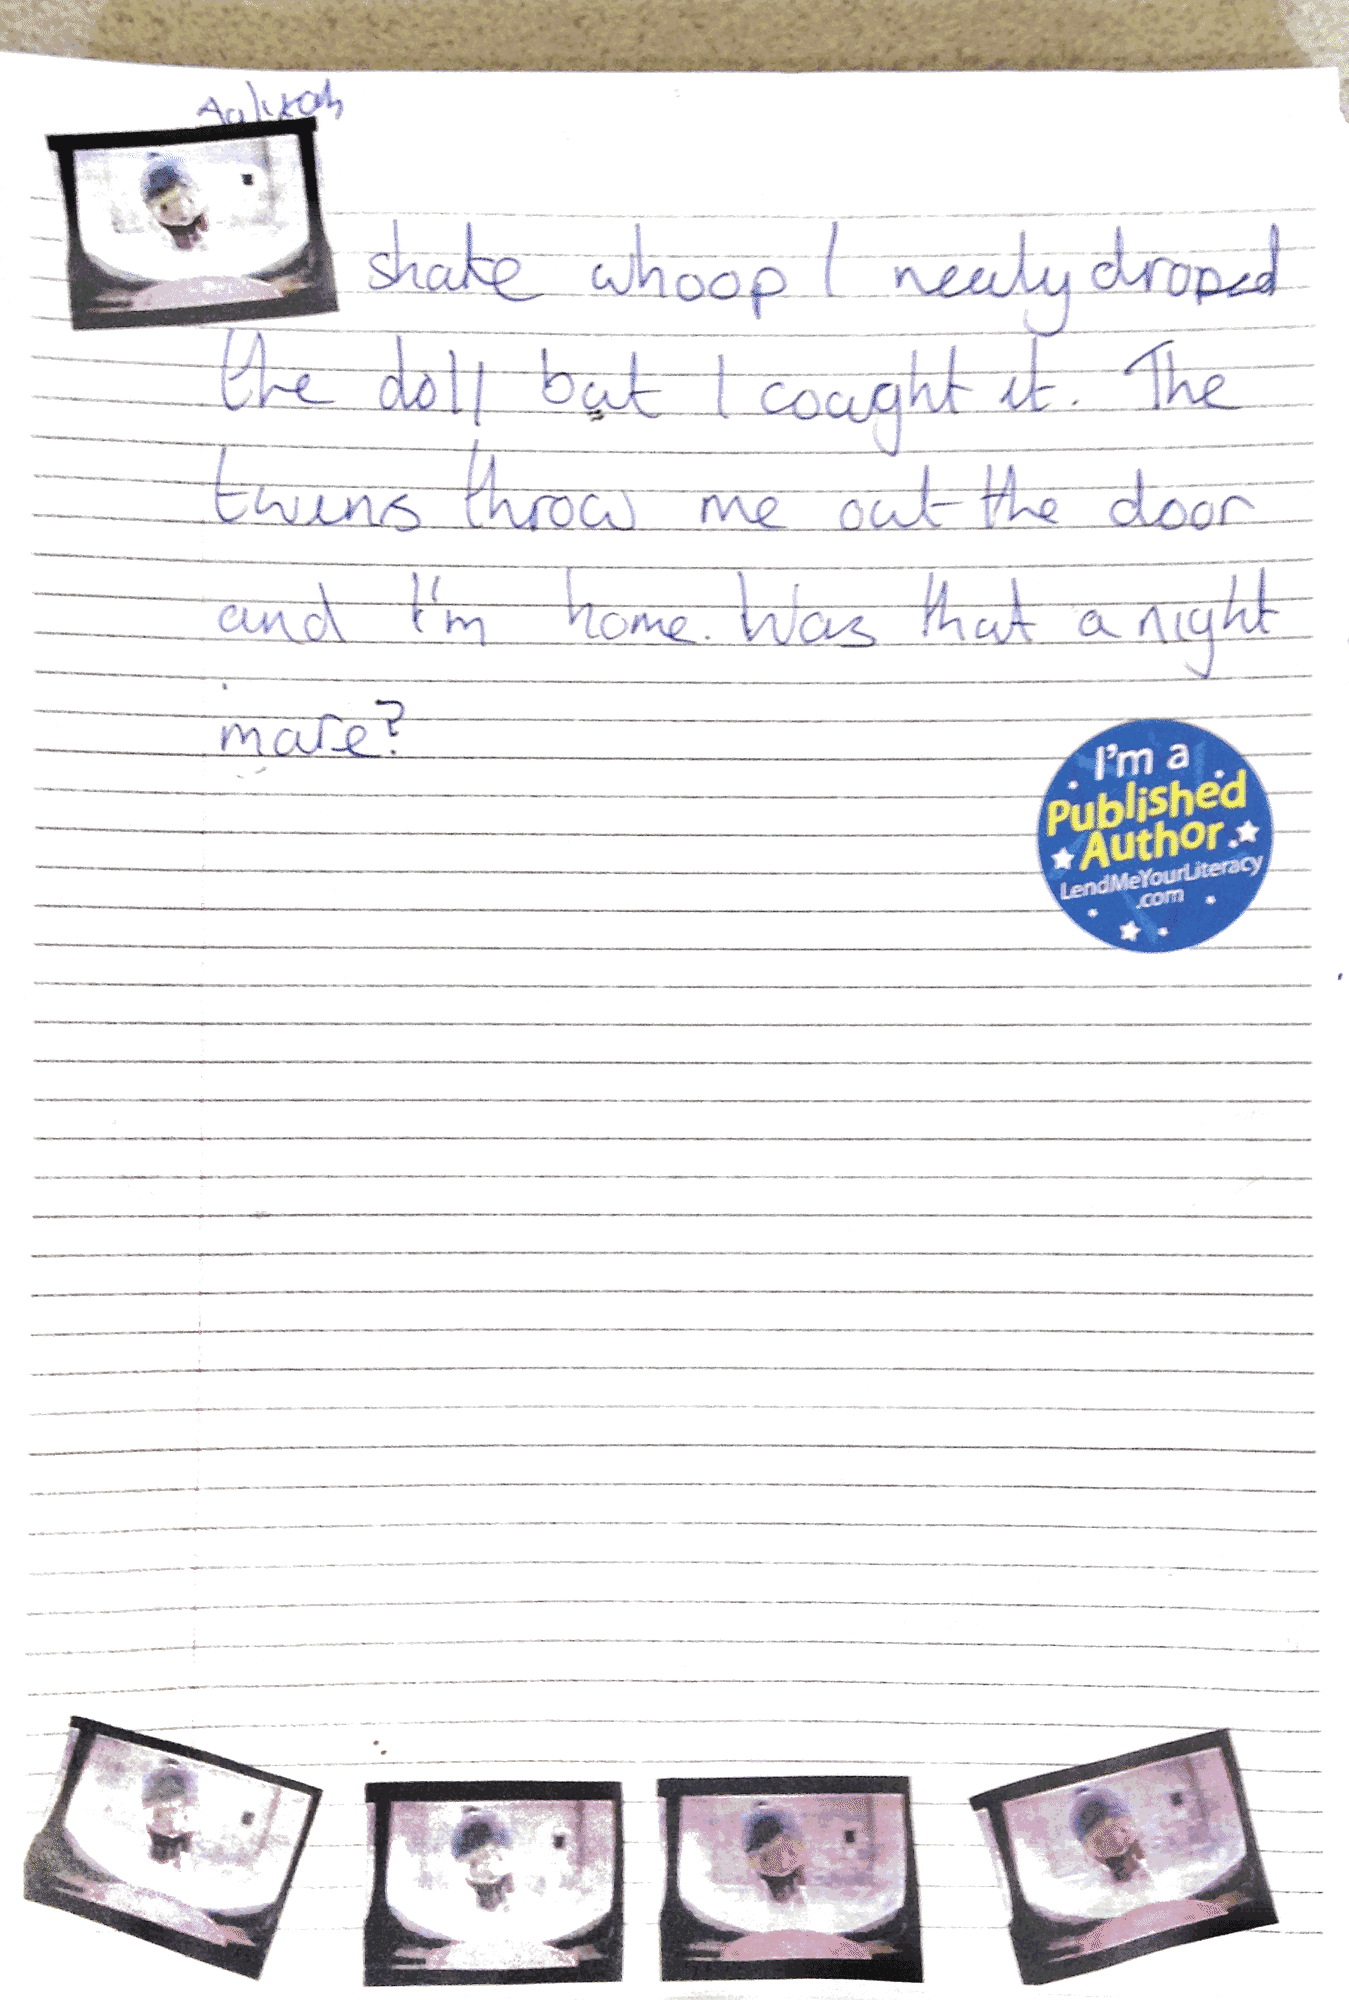 Aaliyah
shake whoop I nearly droped
the doll but I coaght it. The
twins throw me out the door
and I'm home. Was that a night
mare?
I'm a
Published
Author
LendMeYourLiteracy
.com